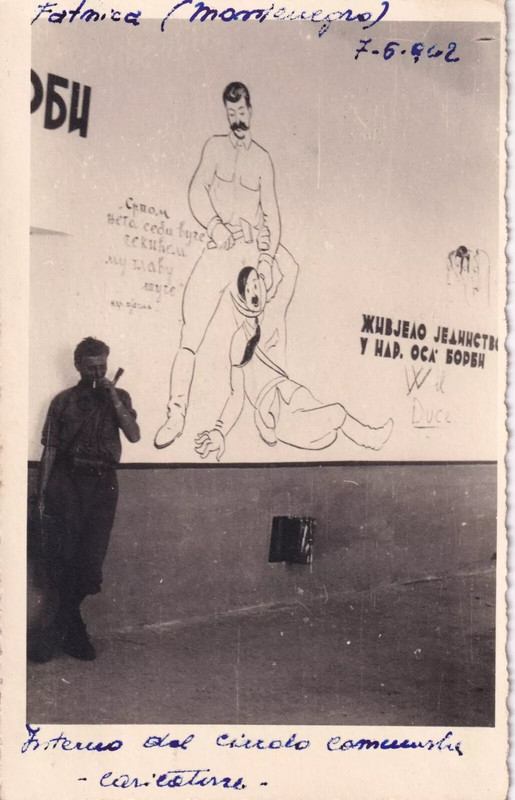 Fatnica (Montenegro)
7-6-942
ОРБИ
„Српом
њега себи вуче
чекићем
му главу
туче"
ЖИВЈЕЛО ЈЕДИНСТВО
У НАР. ОСЛ. БОРБИ
W il
Duce
Interno del circolo comunista
- caricature -